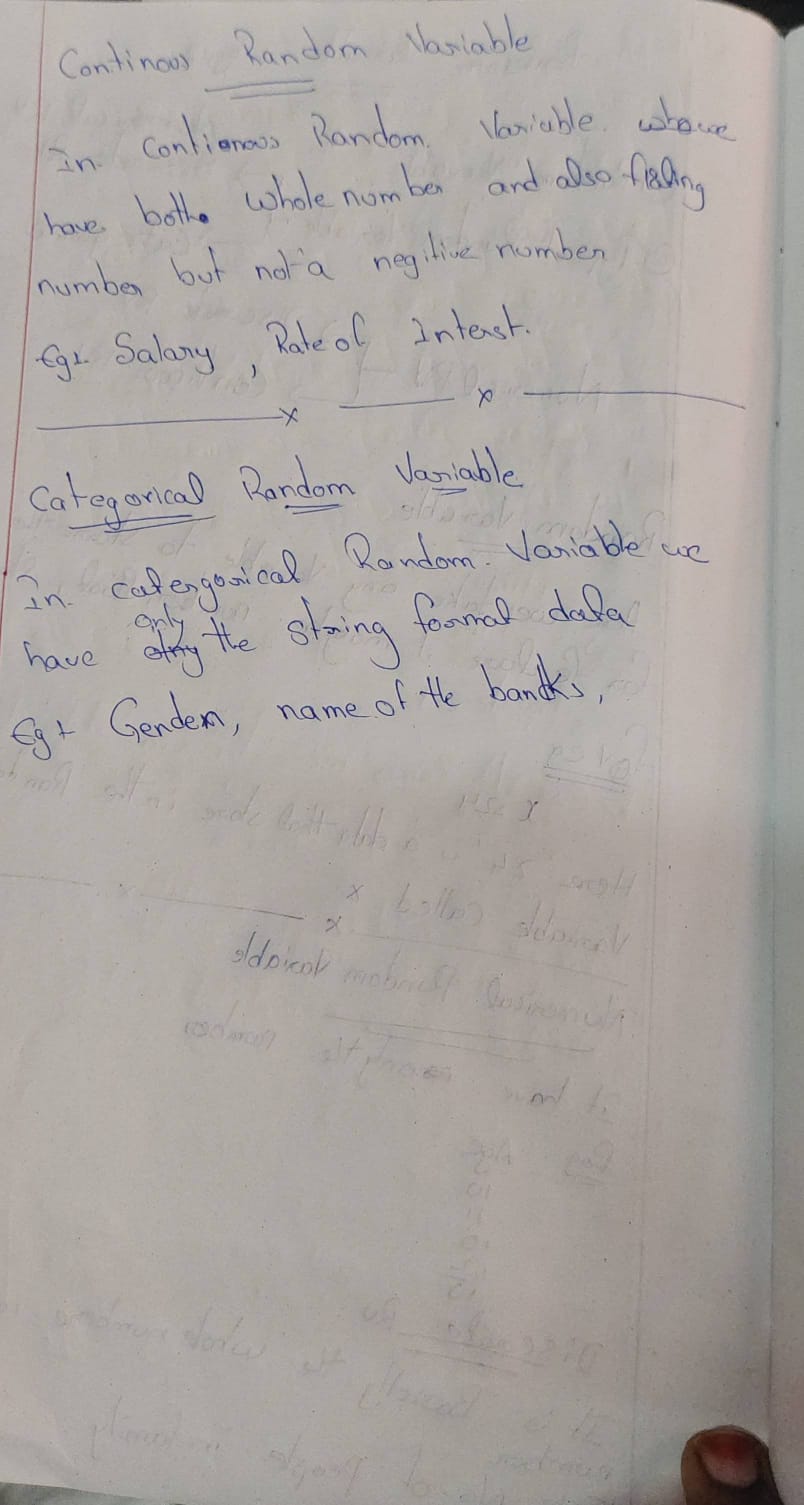 Continous Random Variable
In Contionous Random Variable
have both whole number and also floating
number but not a negitive number
Eg:- Salary, Rate of Interst.
x x
Categorical Random Variable
In catergorical Random Variable we
have only the string format data
Eg:- Gender, name of the bandks,